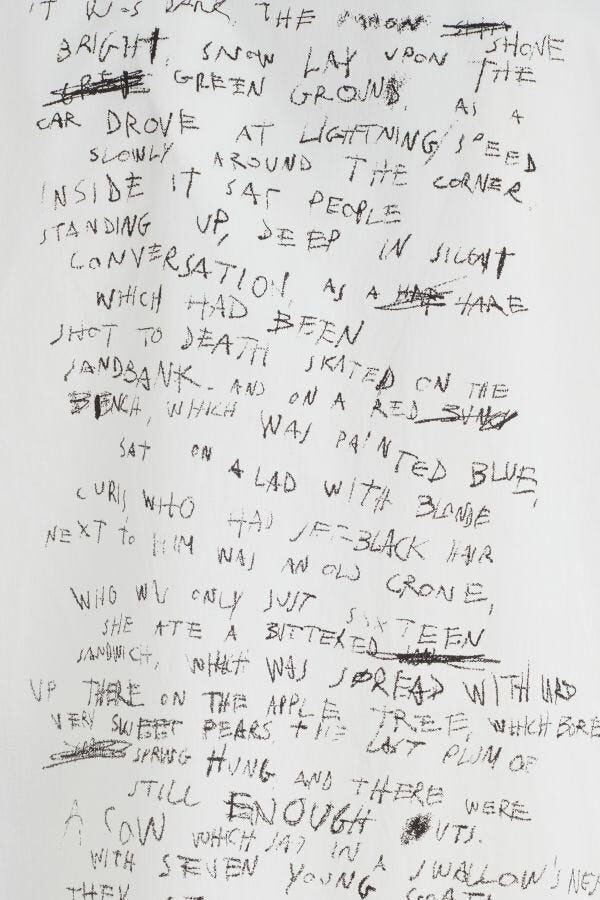 IT WAS DARK, THE MOON
SHONE
BRIGHT, SNOW LAY UPON THE
GREEN GROUND, AS A
CAR DROVE AT LIGHTNING SPEED
SLOWLY AROUND THE CORNER.
INSIDE IT SAT PEOPLE
STANDING UP, DEEP IN SILENT
CONVERSATION, AS A HARE
WHICH HAD BEEN
SHOT TO DEATH SKATED ON THE
SANDBANK. AND ON A RED
BENCH, WHICH WAS PAINTED BLUE,
SAT ON A LAD WITH BLONDE
CURLS WHO HAD JET-BLACK HAIR
NEXT TO HIM WAS AN OLD CRONE,
WHO WAS ONLY JUST SIXTEEN
SHE ATE A BUTTERED
SANDWICH, WHICH WAS SPREAD WITH LARD
UP THERE ON THE APPLE TREE, WHICH BORE
VERY SWEET PEARS, THE LAST PLUM OF
SPRING HUNG AND THERE WERE
STILL ENOUGH UTS.
A COW WHICH SAT IN A SWALLOW'S NES
WITH SEVEN YOUNG GOATS
THEY